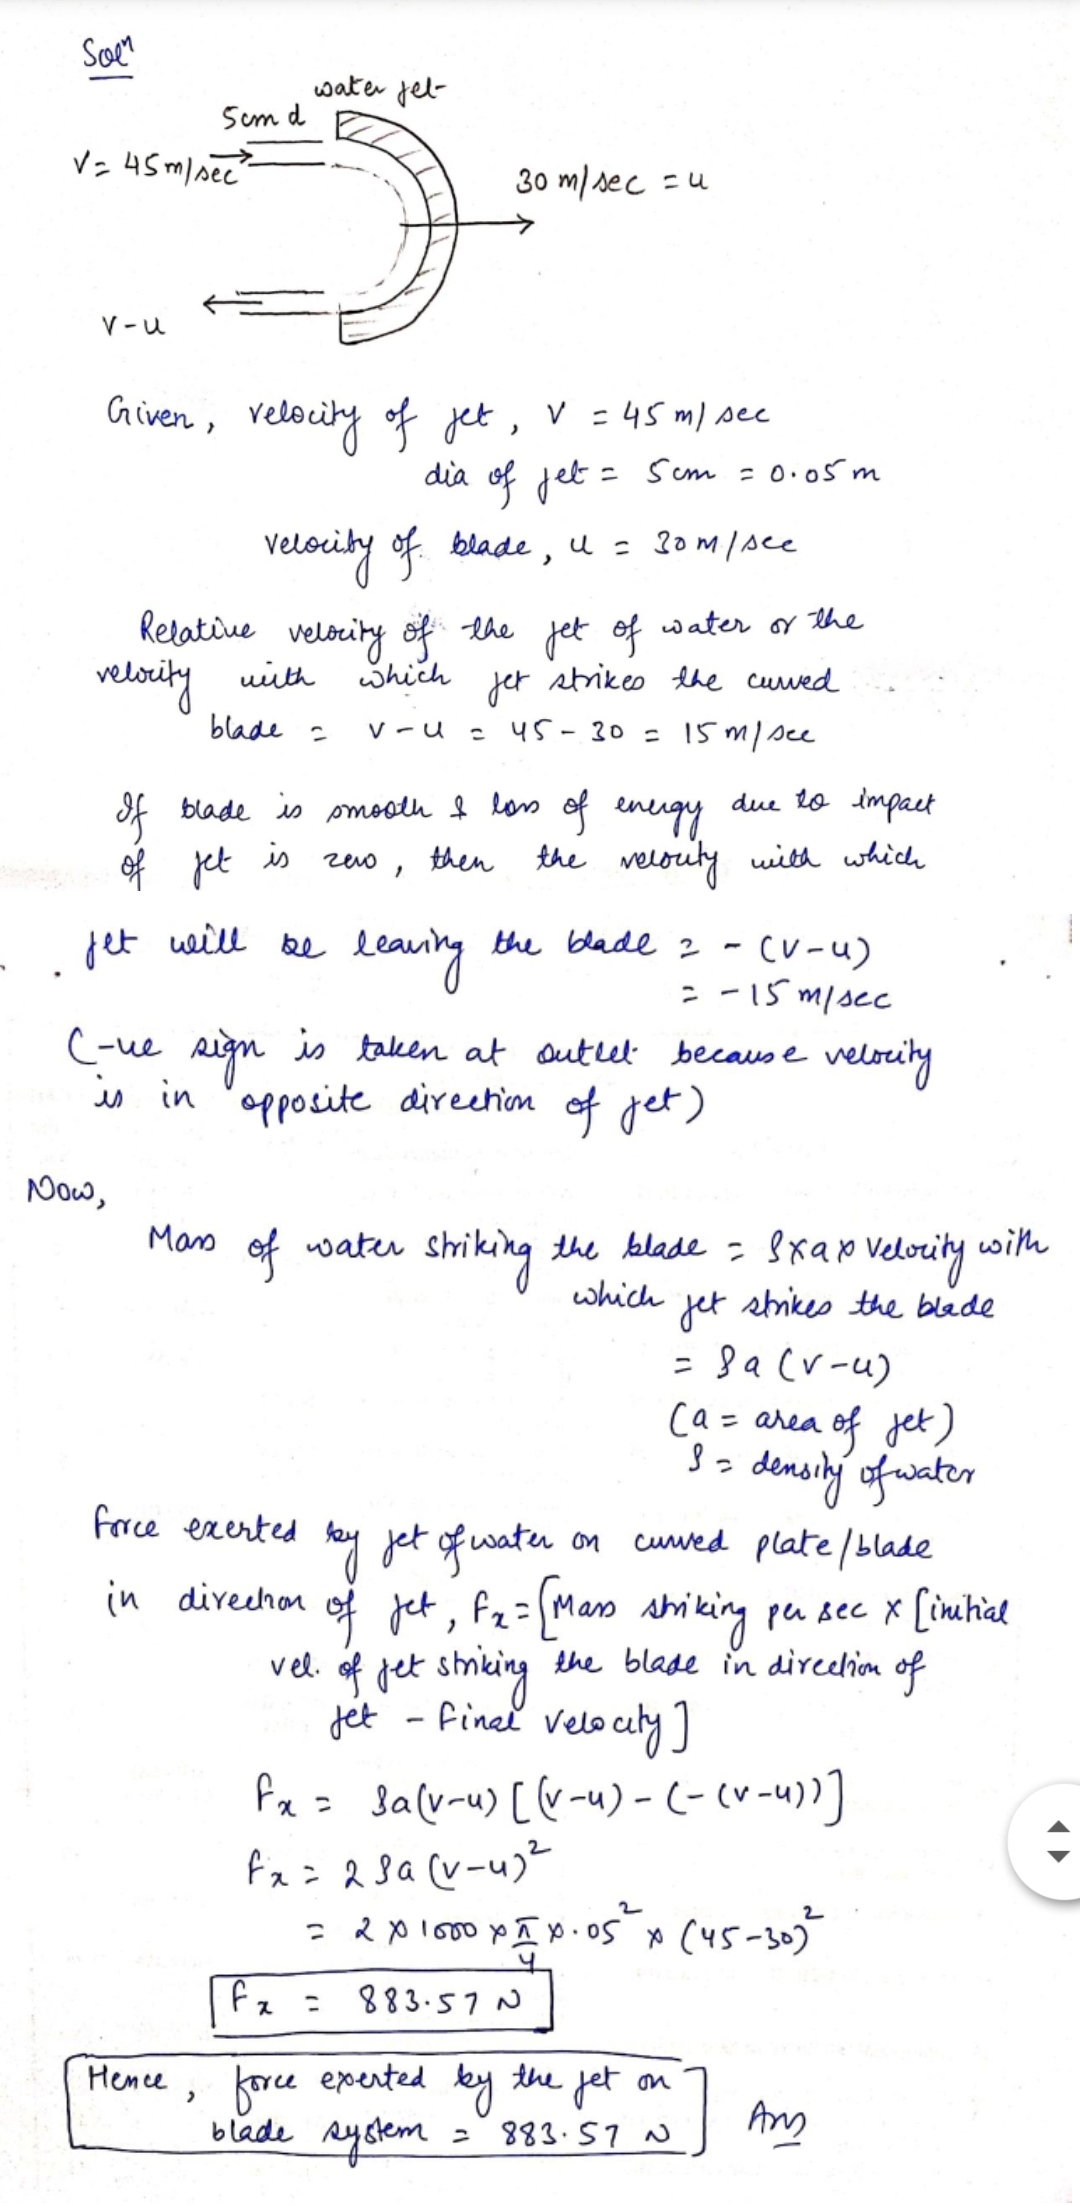 Solⁿ
water jet
5cm d
V = 45 m/sec
30 m/sec = u
v-u
Given, velocity of jet, v = 45 m/sec
dia of jet = 5cm = 0.05 m
velocity of blade, u = 30 m/sec
Relative velocity of the jet of water or the
velocity with which jet strikes the curved
blade = v-u = 45-30 = 15 m/sec
If blade is smooth & loss of energy due to impact
of jet is zero, then the velocity with which
jet will be leaving the blade = -(v-u)
= -15 m/sec
(-ve sign is taken at outlet because velocity
is in opposite direction of jet)
Now,
Mass of water striking the blade = ρ×a× velocity with
which jet strikes the blade
= ρa(v-u)
(a = area of jet)
ρ = density of water
Force exerted by jet of water on curved plate/blade
in direction of jet, Fx = [Mass striking per sec × [initial
vel. of jet striking the blade in direction of
jet - final velocity]
Fx = ρa(v-u) [(v-u) - (-(v-u))]
Fx = 2ρa(v-u)²
= 2 × 1000 × π/4 × .05² × (45-30)²
Fx = 883.57 N
Hence, force exerted by the jet on
blade system = 883.57 N
Ans